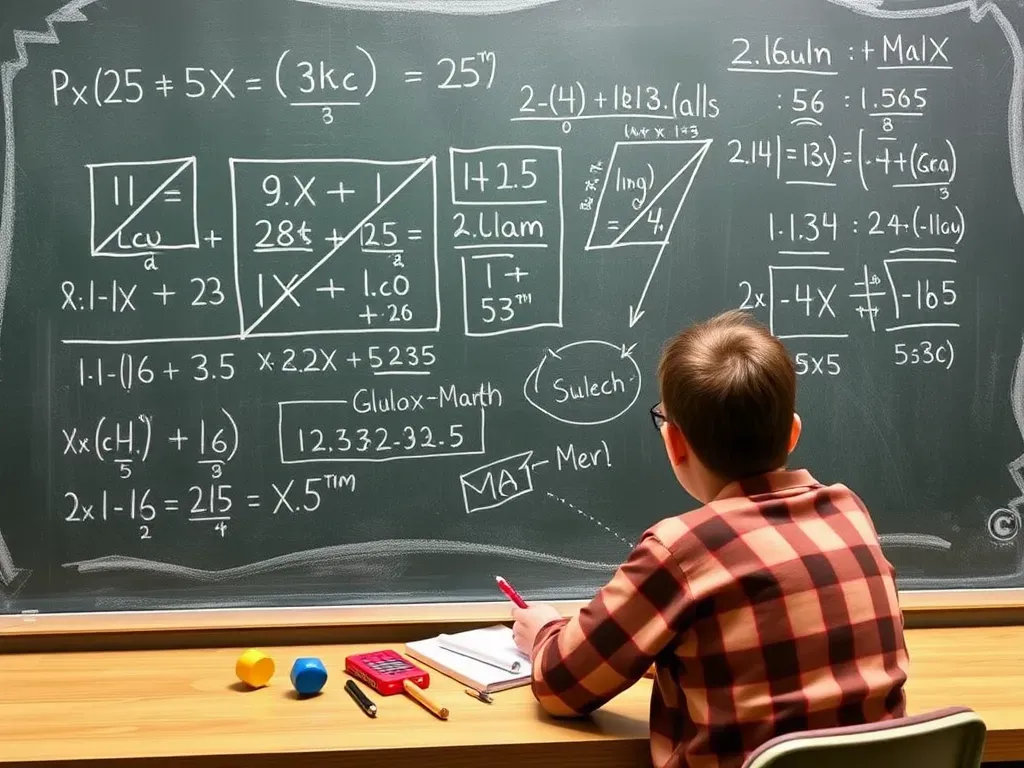 Px(25 ≠ 5X = (3kc) = 25
3
2-(4) + 1613.(alls
0
2.16uln :+ MalX
:56 : 1.565
8
2.14) = 13v) = (-4+(Gra)
3
11 =
Lcu +
a
9.X + 1
28t + 125 =
2
1X + 1.c0
+.26
1+2.5
2.Llam
1 +
53™
ling)
= 4.
1.1.34 : 24+(-11ou)
8.1-1X + 23
2x -4X -165
5x5 5s3c)
1.1-()6 + 3.5 x.2.2X + 5235
Glulox-Marth
12.332-32.5
Sulech
Xx(cH.) + 16)
5 3
MAT - Merl
2x1-16 = 215 = X.5™
2 4
©